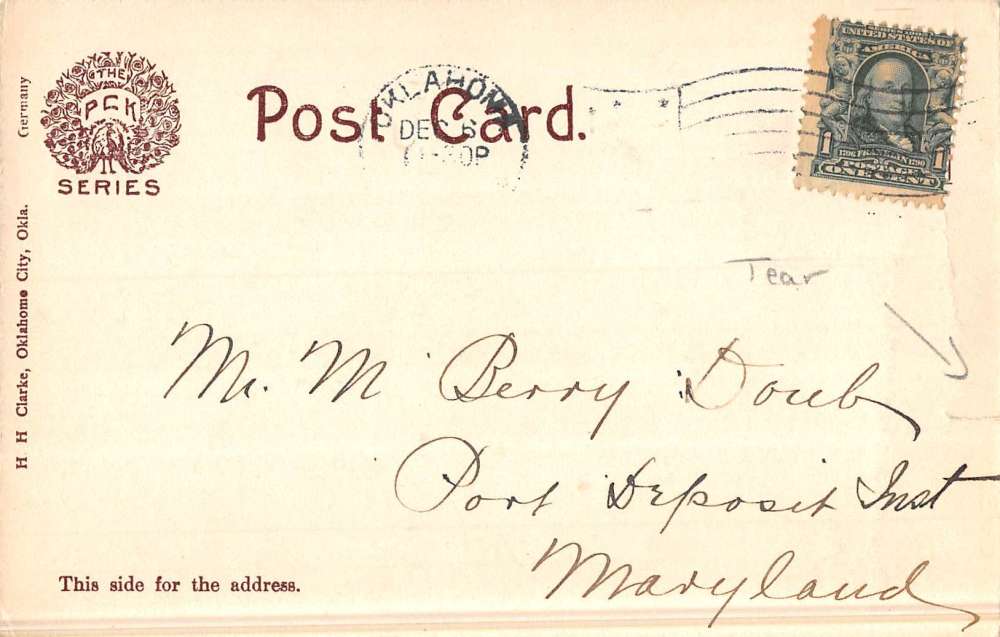 THE
PCK
SERIES
Germany
H H Clarke, Oklahoma City, Okla.
Post Card.
OKLAHOMA
DEC 6
UNITED STATES OF
AMERICA
1 1706 FRANKLIN 1790 1
POSTAGE
ONE CENT
Tear
Mr. M Berry Doub
Port Deposit Inst
Maryland
This side for the address.